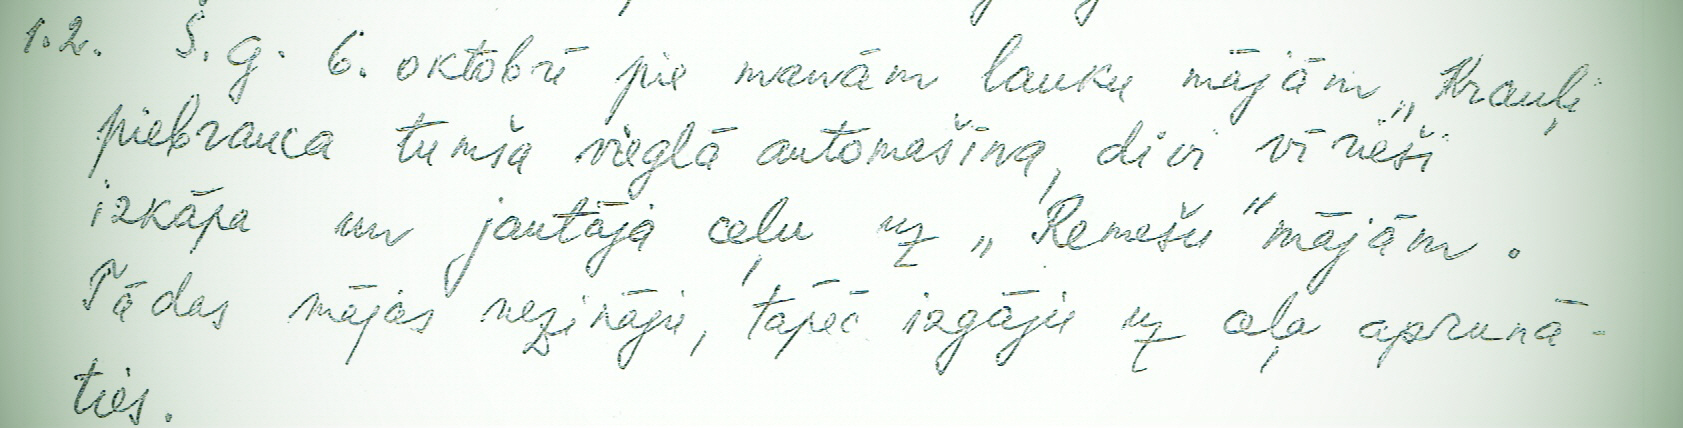 1.2. Š.g. 6. oktobrī pie manām lauku mājām „Krauļi
piebrauca tumša vieglā automašīna, divi vīrieši
izkāpa un jautāja ceļu uz „Remešu" mājām.
Tādas mājas nezināju, tāpēc izgāju uz ceļa aprunā-
ties.